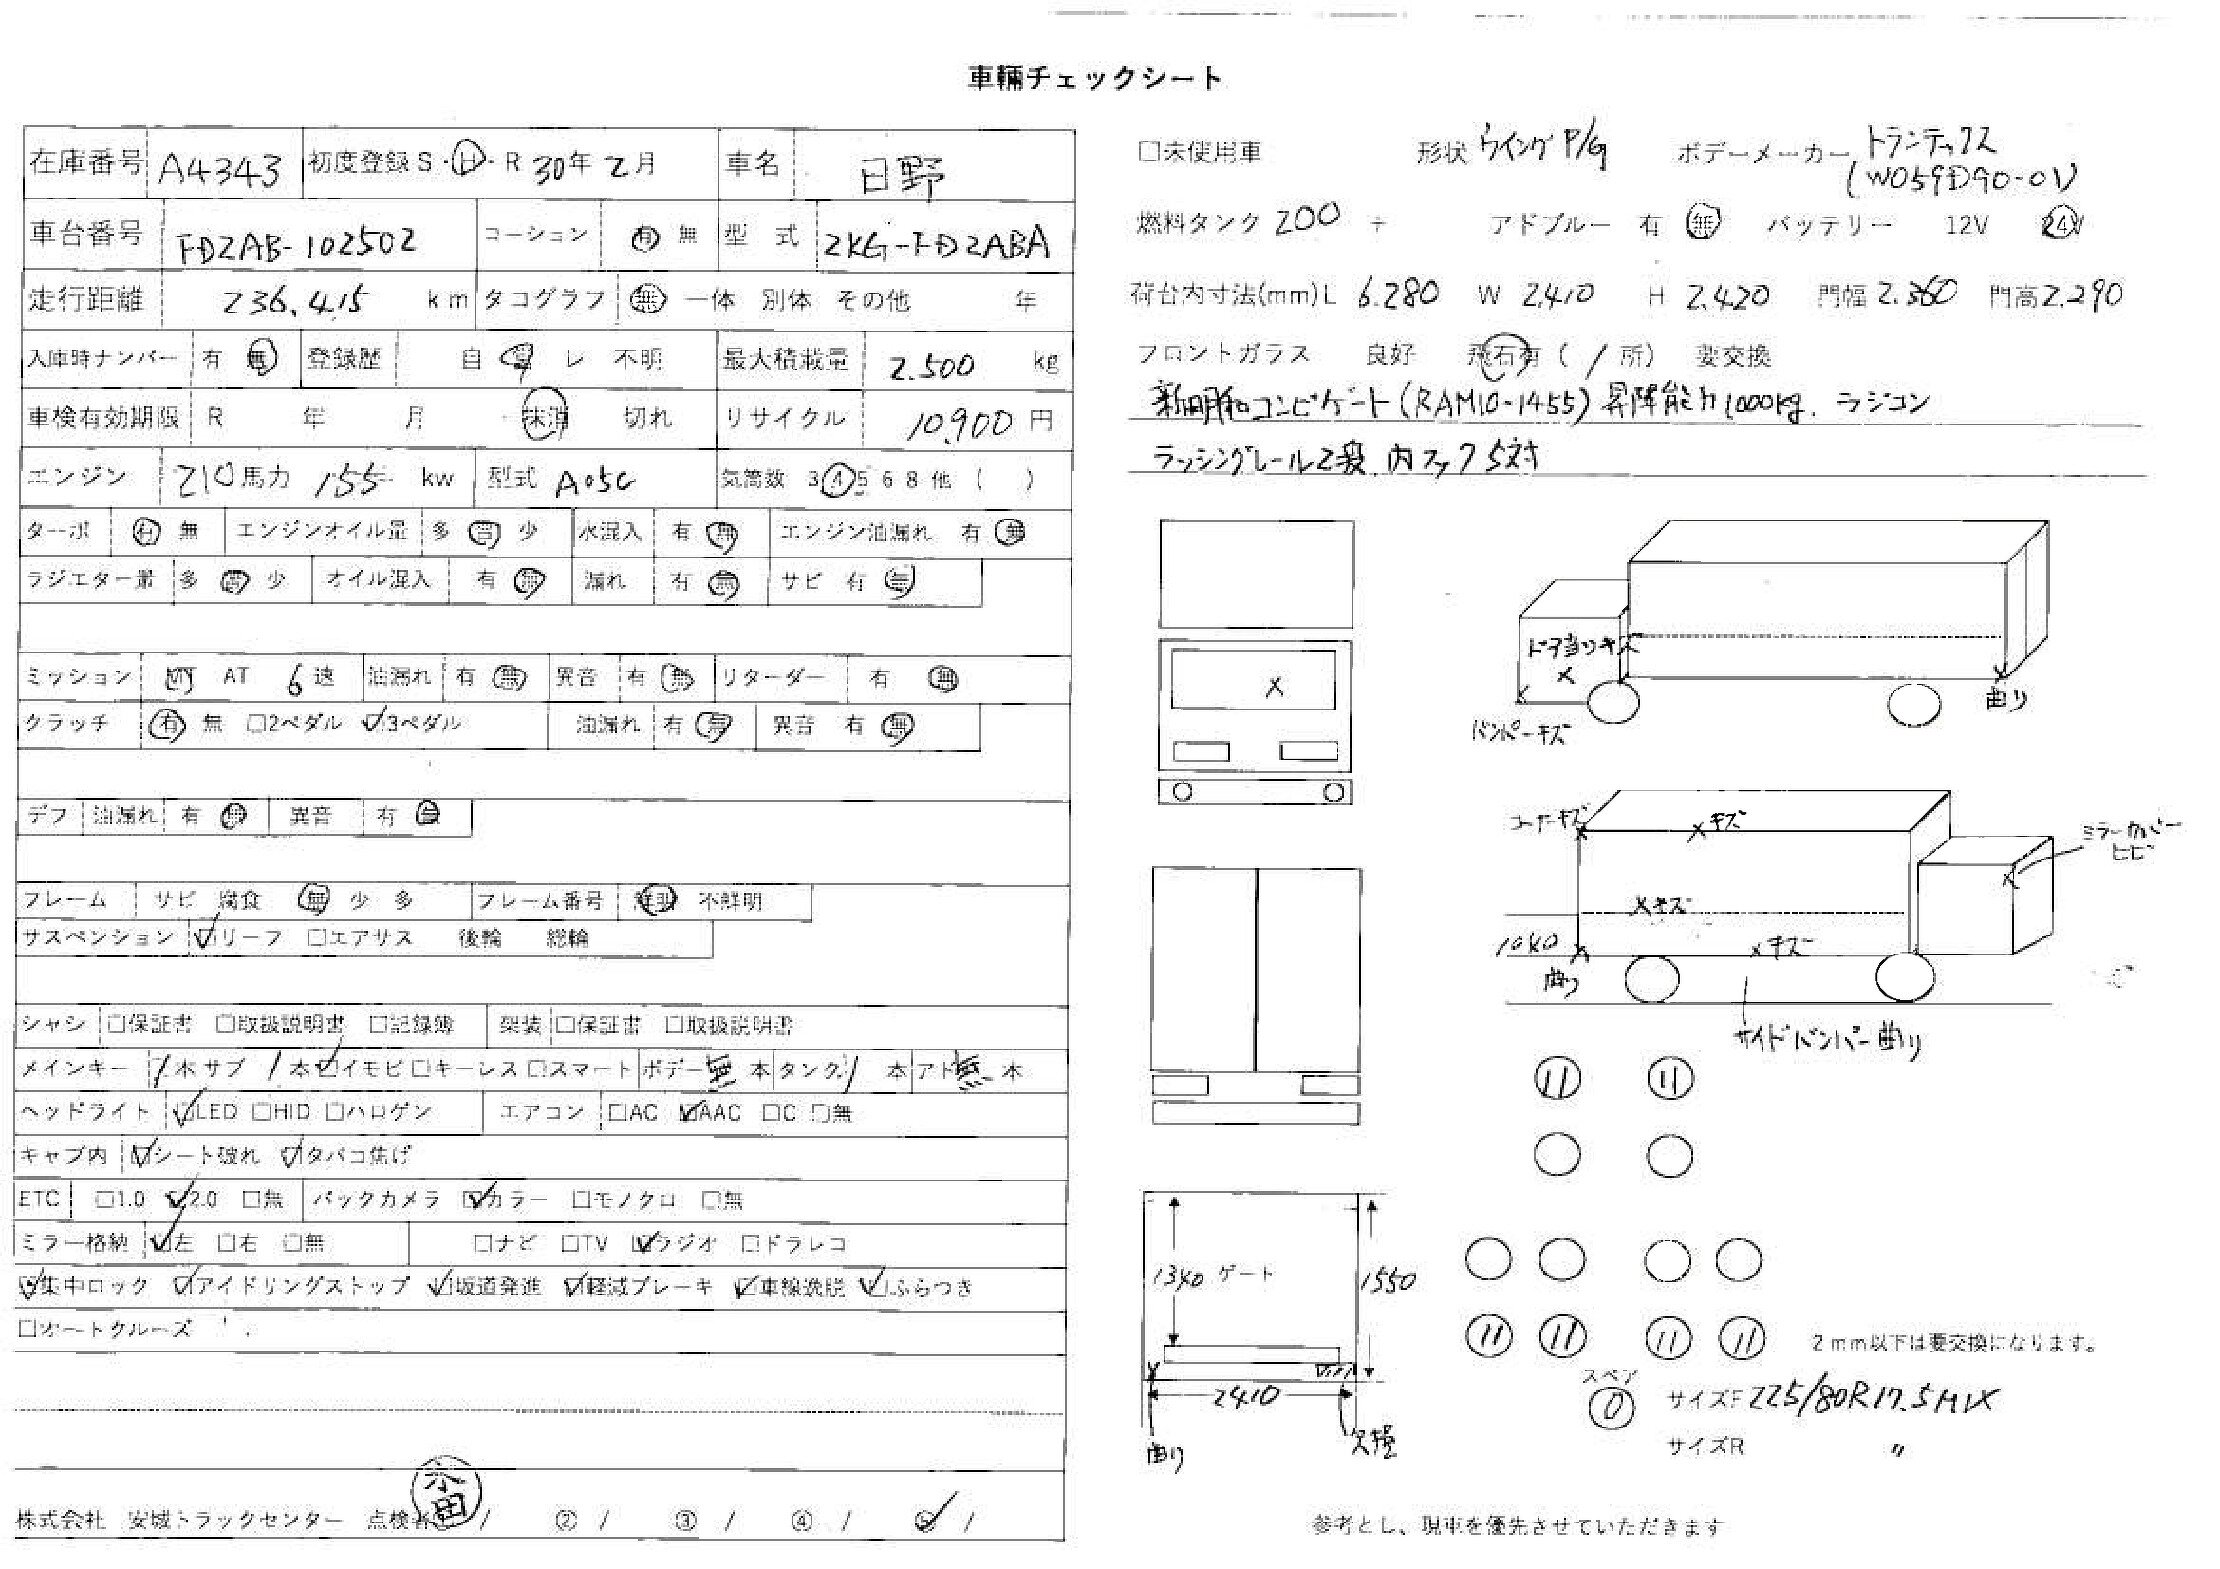 車輛チェックシート
在庫番号 A4343 初度登録 S・H・R 30年 2月 車名 日野
車台番号 FD2AB-102502 コーション 有 無 型式 2KG-FD2ABA
走行距離 236,415 km タコグラフ 無 一体 別体 その他 年
入庫時ナンバー 有 無 登録歴 自 レ 不明 最大積載量 2.500 kg
車検有効期限 R 年 月 抹消 切れ リサイクル 10,900 円
エンジン 210馬力 155 kw 型式 A05C 気筒数 3 4 5 6 8 他 ( )
ターボ 有 無 エンジンオイル量 多 少 水混入 有 無 エンジン油漏れ 有 無
ラジエター量 多 少 オイル混入 有 無 漏れ 有 無 サビ 有 無
ミッション MT AT 6速 油漏れ 有 無 異音 有 無 リターダー 有 無
クラッチ 有 無 □2ペダル ☑3ペダル 油漏れ 有 無 異音 有 無
デフ 油漏れ 有 無 異音 有 無
フレーム サビ 腐食 無 少 多 フレーム番号 鮮明 不鮮明
サスペンション ☑リーフ □エアサス 後輪 総輪
シャシ □保証書 □取扱説明書 □記録簿 架装 □保証書 □取扱説明書
メインキー 1本 サブ 1本 ☑イモビ □キーレス □スマート ボデー 無 本 タンク 1 本 アド 無 本
ヘッドライト ☑LED □HID □ハロゲン エアコン □AC ☑AAC □C □無
キャブ内 ☑シート破れ ☑タバコ焦げ
ETC □1.0 ☑2.0 □無 バックカメラ ☑カラー □モノクロ □無
ミラー格納 ☑左 □右 □無 □ナビ □TV ☑ラジオ □ドラレコ
☑集中ロック ☑アイドリングストップ ☑坂道発進 ☑軽減ブレーキ ☑車線逸脱 ☑ふらつき
□オートクルーズ
株式会社 安城トラックセンター 点検者 / ② / ③ / ④ / ⑤ /
□未使用車 形状 ウイング P/G ボデーメーカー トランテックス
(W059D90-01)
燃料タンク 200 アドブルー 有 無 バッテリー 12V 24V
荷台内寸法(mm) L 6.280 W 2410 H 2.420 門幅 2.360 門高 2.290
フロントガラス 良好 飛石有 ( 1 所) 要交換
新明和コンビゲート(RAM10-1455) 昇降能力1000kg. ラジコン
ラッシングレール2段. 内フック5対
ドア当りキズ
曲り
バンパーキズ
コーナーキズ
キズ
ミラーカバー
ヒビ
キズ
1040
キズ
曲り
サイドバンパー曲り
1340 ゲート
1550
2410
曲り
欠損
2mm以下は要交換になります。
スペア
サイズF 225/80R17.5 MIX
サイズR 〃
参考とし、現車を優先させていただきます